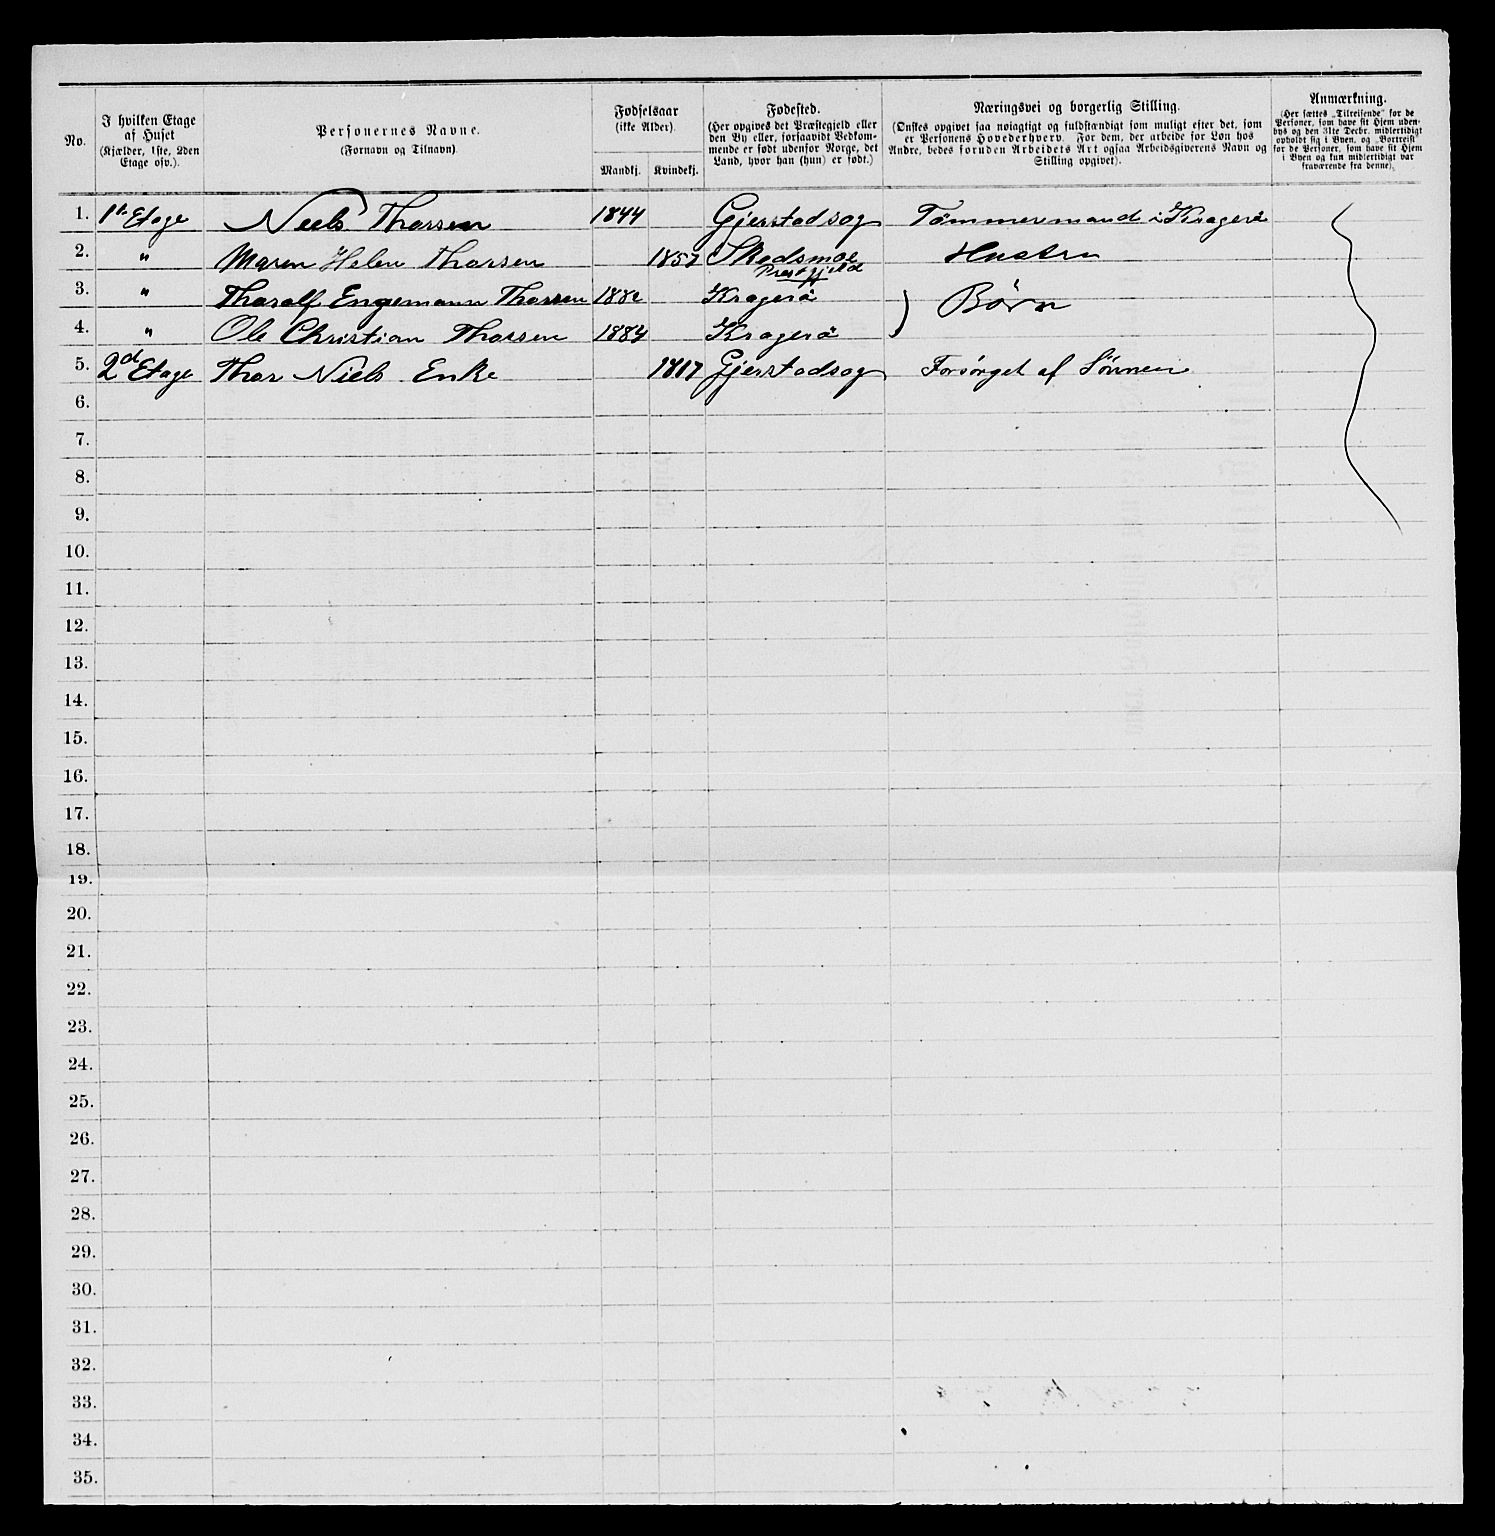 No.
I hvilken Etage
af Huset
(Kjælder, 1ste, 2den
Etage osv.).
Personernes Navne.
(Fornavn og Tilnavn).
Fødselsaar
(ikke Alder).
Mandkj. Kvindekj.
Fødested.
(Her opgives det Præstegjeld eller
den By eller, forsaavidt Vedkom-
mende er født udenfor Norge, det
Land, hvor han (hun) er født.)
Næringsvei og borgerlig Stilling.
(Ønskes opgivet saa nøiagtigt og fuldstændigt som muligt efter det, som
er Personens Hovederhverv. For dem, der arbeide for Løn hos
Andre, bedes foruden Arbeidets Art ogsaa Arbeidsgiverens Navn og
Stilling opgivet).
Anmærkning.
(Her sættes „Tilreisende“ for de
Personer, som have sit Hjem uden-
bys og den 31te Decbr. midlertidigt
opholdt sig i Byen, og „Bortreist“
for de Personer, som have sit Hjem
i Byen og kun midlertidigt var
fraværende fra denne).
1. 1st Etage Niels Thorsen 1844 Gjerstadsog Tömmermand i Kragerö
2. " Maren Helen Thorsen 1857 Skedsmoe Hustru
Prestgjeld
3. " Tharalf Engemann Thorsen 1882 Kragerö Börn
4. " Ole Christian Thorsen 1884 Kragerö
5. 2d Etage Thor Niels Enke 1817 Gjerstadsog Forsörget af Sönnen
6.
7.
8.
9.
10.
11.
12.
13.
14.
15.
16.
17.
18.
19.
20.
21.
22.
23.
24.
25.
26.
27.
28.
29.
30.
31.
32.
33.
34.
35.